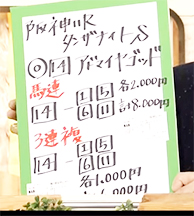 阪神11R
タンザナイトS
◎14 バルマイヤゴッド
馬連
14 - 1 5 各2.000円
6 11 計8.000円
3連複
14 - 1 5
6 11
各1.000円